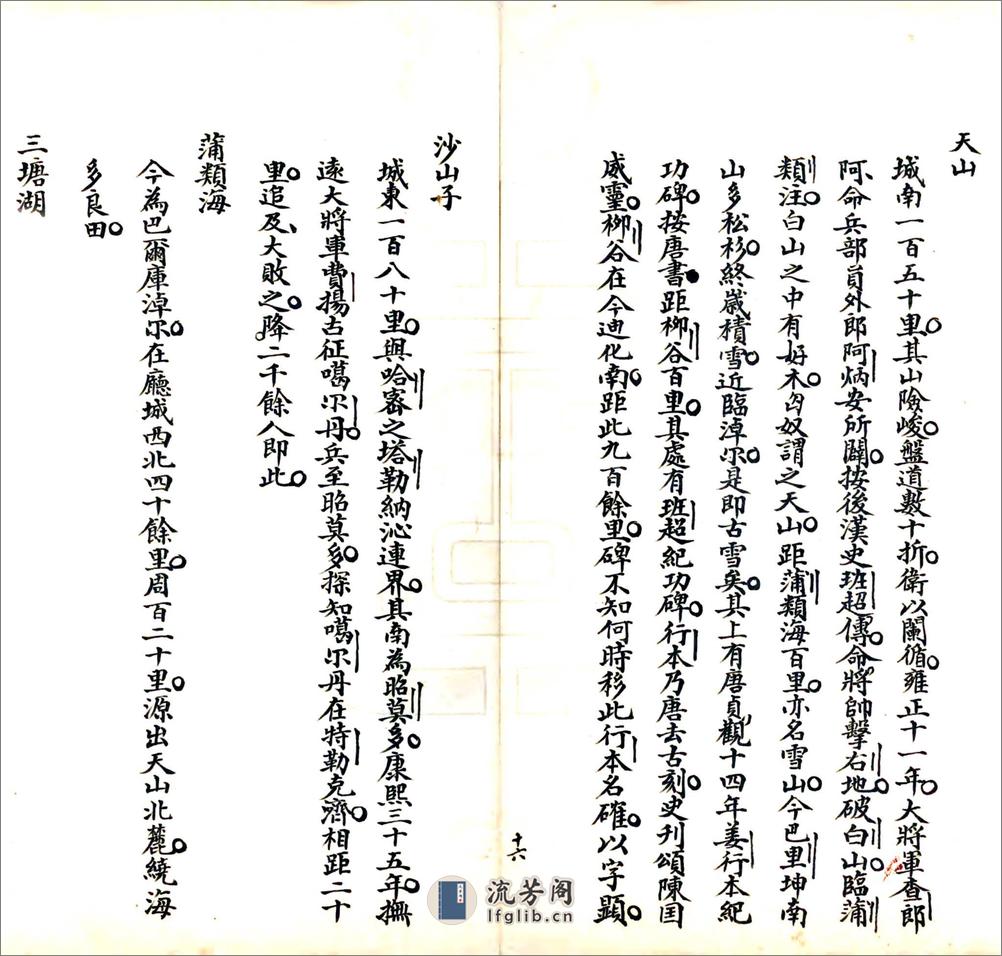 天山
城南一百五十里其山險峻盤道數十折衛以闌循雍正十一年大將軍查郎
阿命兵部員外郎阿炳安所闢按後漢史班超傳命將帥擊右地破白山臨蒲
類注白山之中有好木匈奴謂之天山距蒲類海百里亦名雪山今巴里坤南
山多松杉終歲積雪近臨淖尔是即古雪矣其上有唐貞觀十四年姜行本紀
功碑按唐書距柳谷百里其處有班超紀功碑行本乃唐去古刻史刊頌陳国
威靈柳谷在今迪化南距此九百餘里碑不知何時移此行本名確以字顕
十六
沙山子
城東一百八十里與哈密之塔勒納沁連界其南為昭莫多康熙三十五年撫
遠大將軍費揚古征噶尔丹兵至昭莫多探知噶尔丹在特勒克濟相距二十
里追及大敗之降二千餘人即此
蒲類海
今為巴爾庫淖尔在廳城西北四十餘里周百二十里源出天山北麓繞海
多良田
三塘湖
流芳阁
lfglib.cn